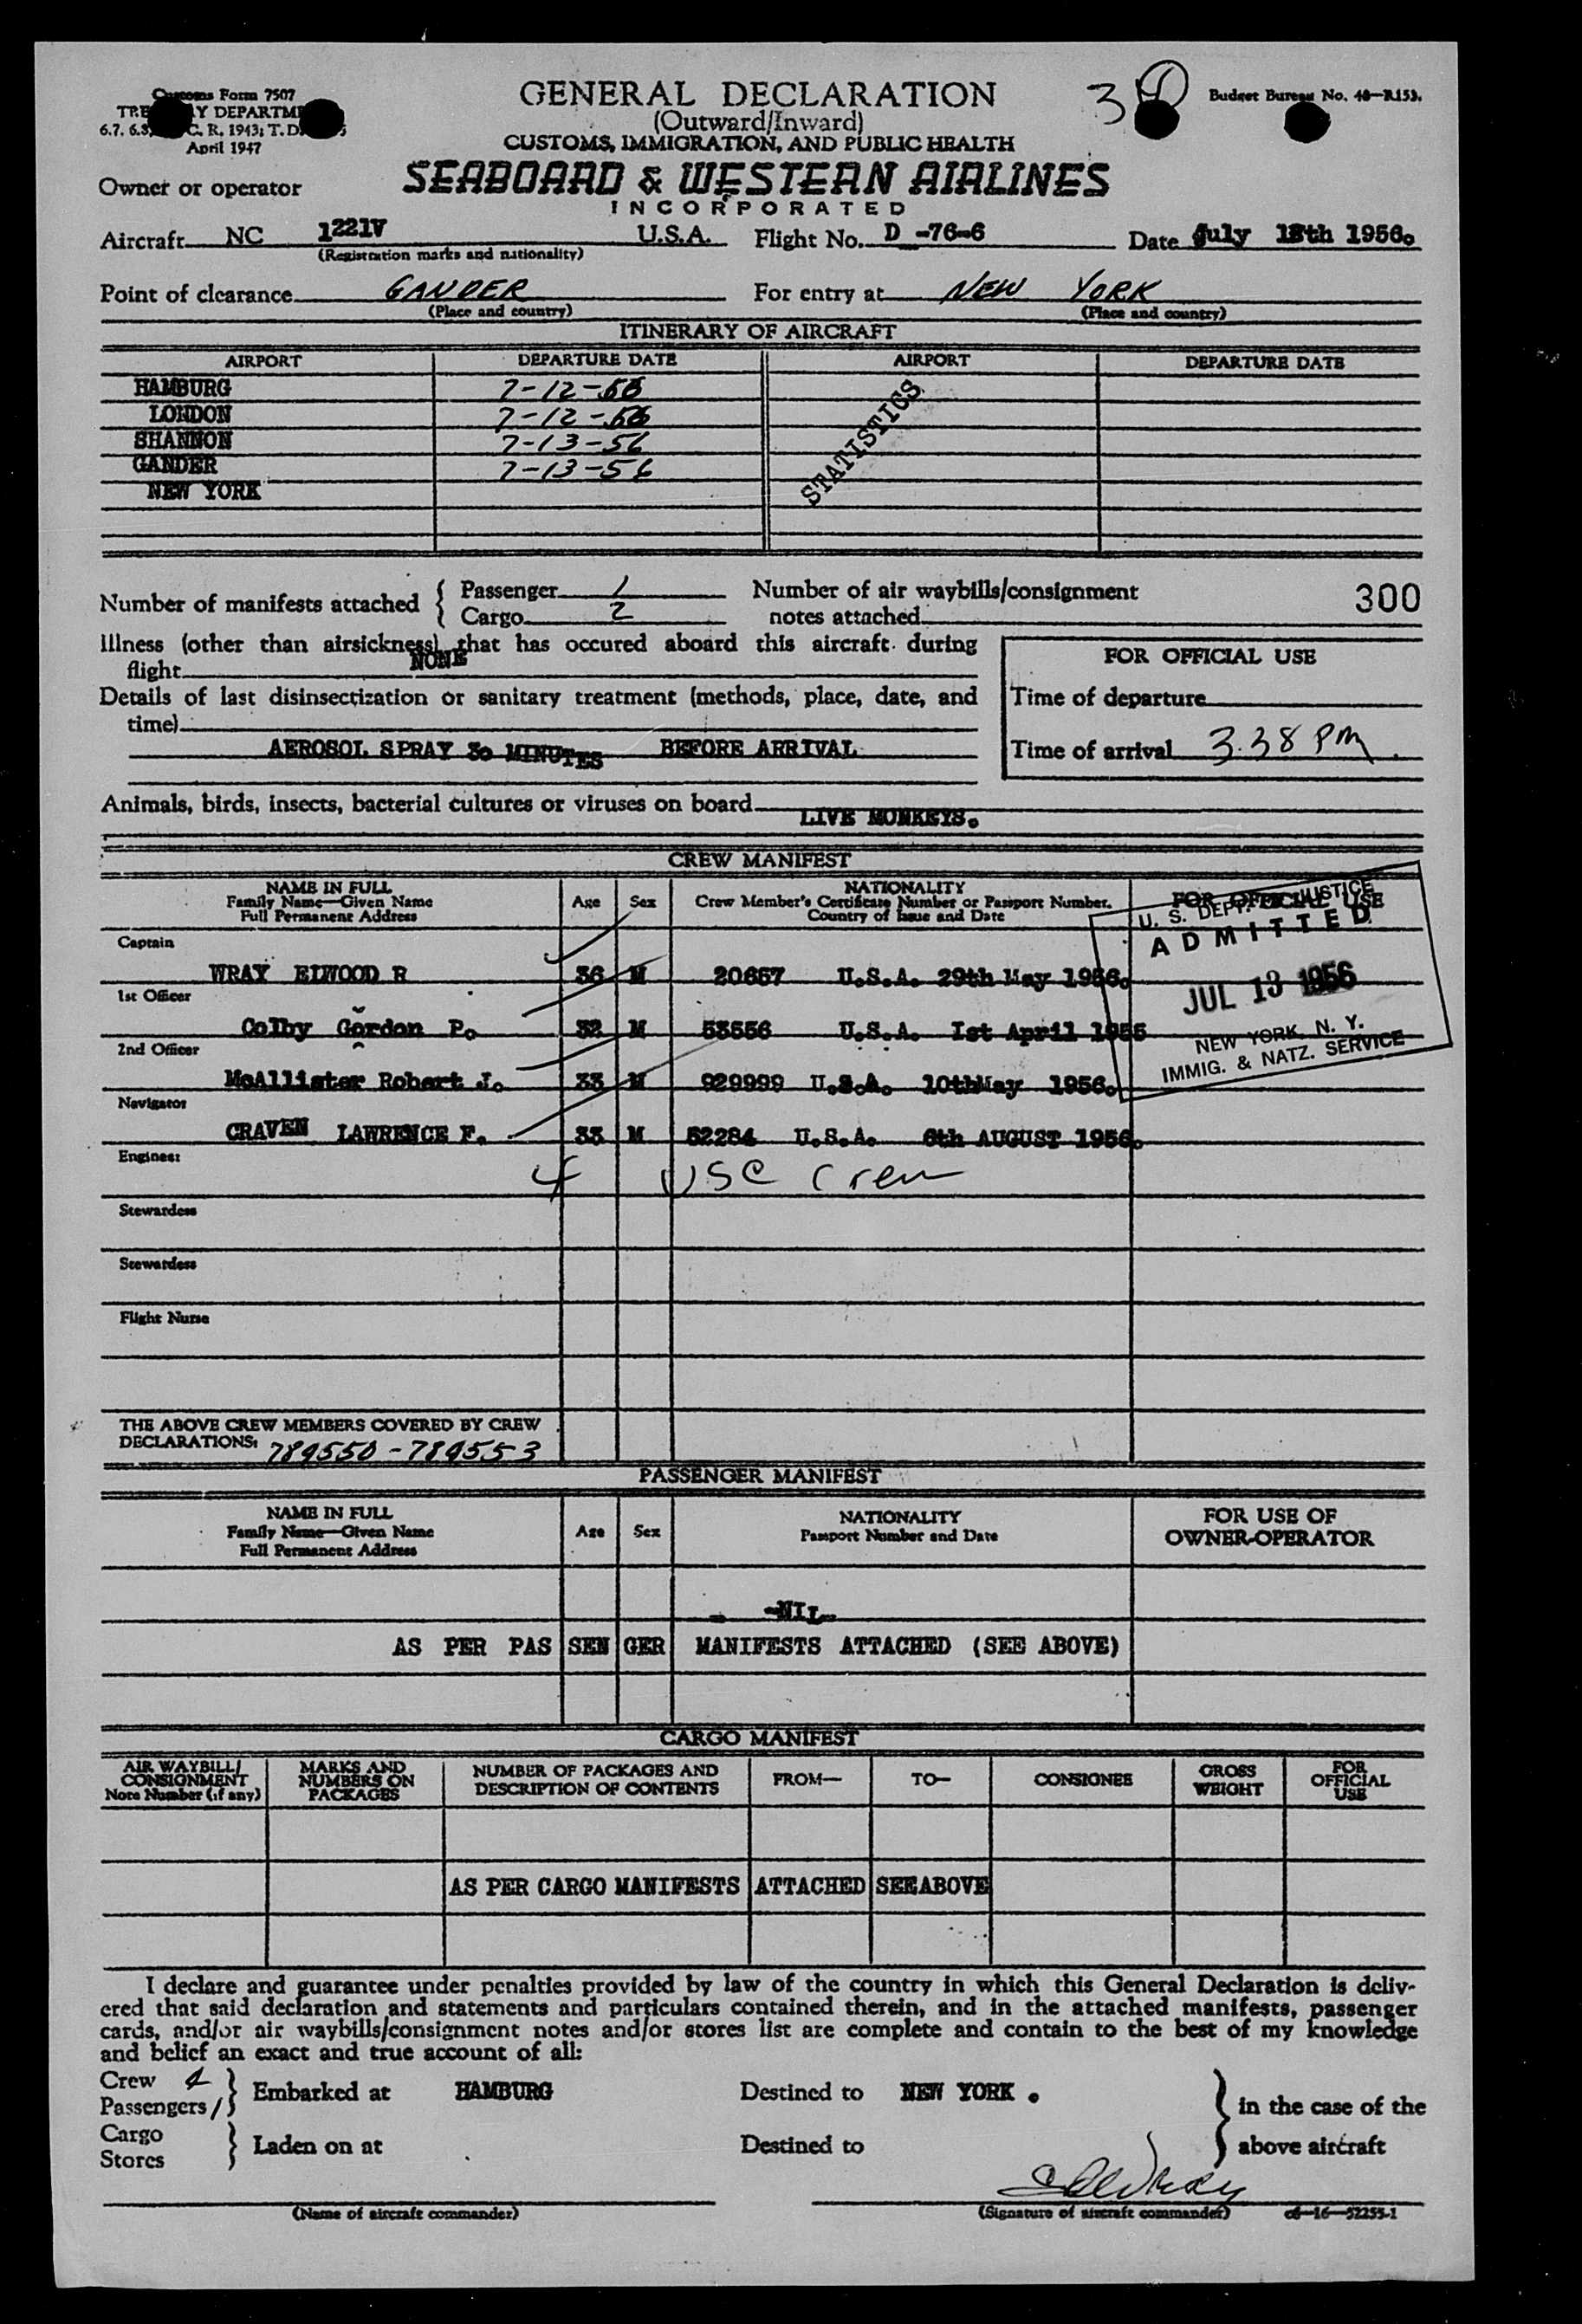 Customs Form 7507
GENERAL DECLARATION
38
Budget Bureau No. 48-R153.
(Outward/Inward)
6.7, 6.8, C. R. 1943; T. D.
April 1947
CUSTOMS, IMMIGRATION, AND PUBLIC HEALTH
Owner or operator SEABOARD & WESTERN AIRLINES
INCORPORATED
Aircraft NC 1221V U.S.A. Flight No. D -76-6 Date July 12th 1956.
(Registration marks and nationality)
Point of clearance GANDER For entry at NEW YORK
(Place and country) (Place and country)
ITINERARY OF AIRCRAFT
AIRPORT DEPARTURE DATE AIRPORT DEPARTURE DATE
HAMBURG 7-12-56
LONDON 7-12-56
SHANNON 7-13-56
GANDER 7-13-56
NEW YORK
STATISTICS
Number of manifests attached { Passenger 1 Number of air waybills/consignment 300
Cargo 2 notes attached
Illness (other than airsickness) that has occured aboard this aircraft during
flight NONE
FOR OFFICIAL USE
Details of last disinsectization or sanitary treatment (methods, place, date, and
time)
Time of departure
AEROSOL SPRAY 30 MINUTES BEFORE ARRIVAL
Time of arrival 3.38 PM.
Animals, birds, insects, bacterial cultures or viruses on board LIVE MONKEYS.
CREW MANIFEST
NAME IN FULL Age Sex NATIONALITY FOR OFFICIAL USE
Family Name—Given Name Crew Member's Certificate Number or Passport Number.
Full Permanent Address Country of Issue and Date
U. S. DEPT. OF JUSTICE
ADMITTED
JUL 13 1956
NEW YORK, N. Y.
IMMIG. & NATZ. SERVICE
Captain
WRAY ELWOOD R 36 M 20657 U.S.A. 29th May 1956.
1st Officer
Colby Gordon P. 32 M 53556 U.S.A. Ist April 1955
2nd Officer
McAllister Robert J. 33 M 929999 U.S.A. 10thMay 1956.
Navigator
CRAVEN LAWRENCE F. 33 M 52284 U.S.A. 6th AUGUST 1956.
Engineer
4 USC Crew
Stewardess
Stewardess
Flight Nurse
THE ABOVE CREW MEMBERS COVERED BY CREW
DECLARATIONS: 789550-789553
PASSENGER MANIFEST
NAME IN FULL Age Sex NATIONALITY FOR USE OF
Family Name—Given Name Passport Number and Date OWNER-OPERATOR
Full Permanent Address
-NIL-
AS PER PAS SEN GER MANIFESTS ATTACHED (SEE ABOVE)
CARGO MANIFEST
AIR WAYBILL/ MARKS AND NUMBER OF PACKAGES AND FROM— TO— CONSIGNEE GROSS FOR
CONSIGNMENT NUMBERS ON DESCRIPTION OF CONTENTS WEIGHT OFFICIAL
Note Number (if any) PACKAGES USE
AS PER CARGO MANIFESTS ATTACHED SEE ABOVE
I declare and guarantee under penalties provided by law of the country in which this General Declaration is deliv-
ered that said declaration and statements and particulars contained therein, and in the attached manifests, passenger
cards, and/or air waybills/consignment notes and/or stores list are complete and contain to the best of my knowledge
and belief an exact and true account of all:
Crew 4 } Embarked at HAMBURG Destined to NEW YORK . } in the case of the
Passengers 1
Cargo } Laden on at Destined to above aircraft
Stores
(Name of aircraft commander) (Signature of aircraft commander) c6-16-52255-1